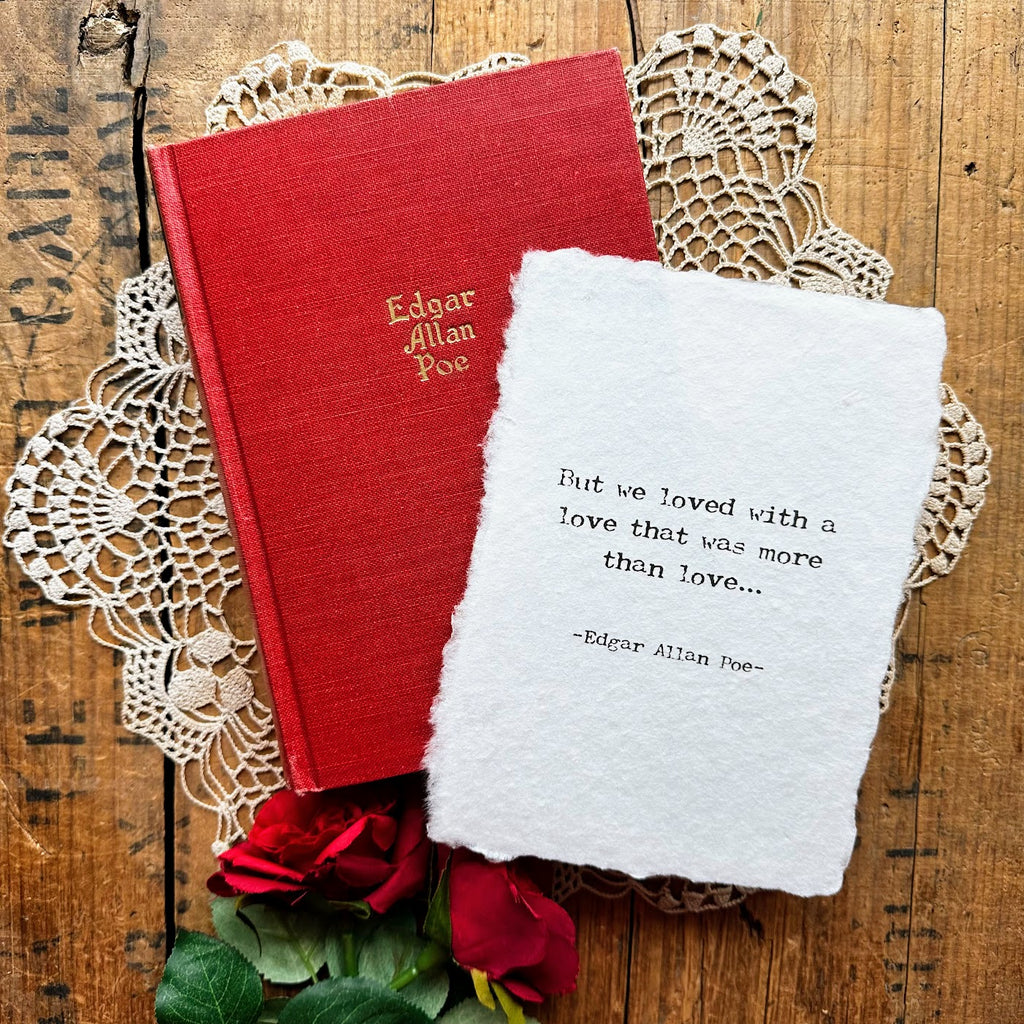 Edgar
Allan
Poe
But we loved with a
love that was more
than love...
-Edgar Allan Poe-